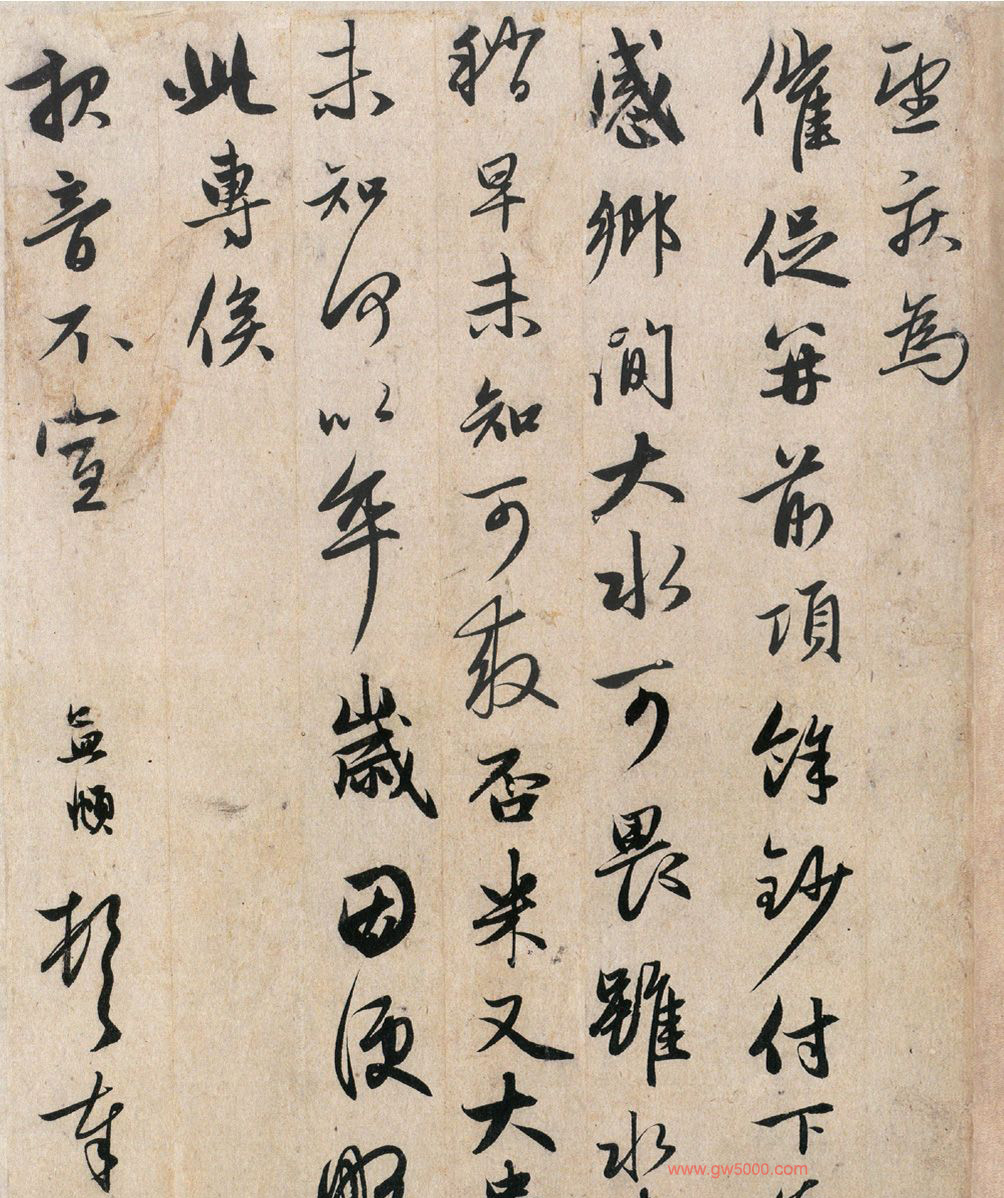 聖虎為
催促并前項餘鈔付下
感鄉間大水可畏雖水
稍早未知可救否米又大
未知何以卒歲因便
此專俟
報音不宣 孟頫 頓奉
www.gw5000.com